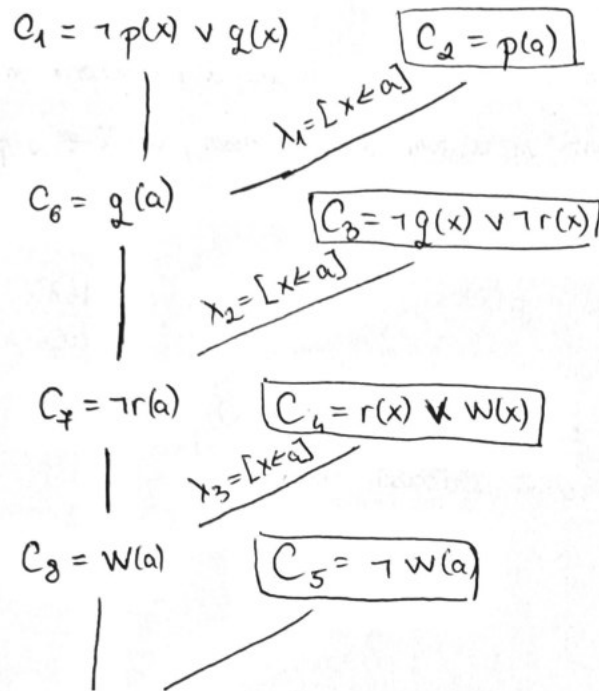 C₁ = ¬p(x) ∨ q(x)
C₂ = p(a)
λ₁ = [x ← a]
C₆ = q(a)
C₃ = ¬q(x) ∨ ¬r(x)
λ₂ = [x ← a]
C₇ = ¬r(a)
C₄ = r(x) ∨ W(x)
λ₃ = [x ← a]
C₈ = W(a)
C₅ = ¬W(a)